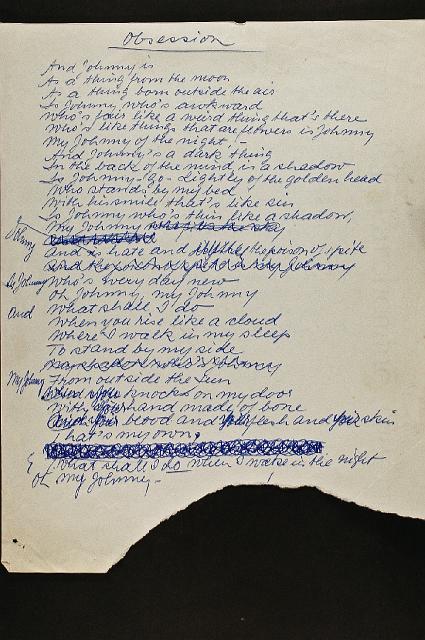 Obsession
And Johnny is
As a thing from the moon
As a thing born outside the air
Is Johnny, who's awkward
Who's fair like a weird thing that's there
Who's like things that are flowers is Johnny
My Johnny of the night, -
And Johnny's a dark thing
In the back of the mind is a shadow
Is Johnny-Go-Lightly of the golden head
Who stands by my bed
With his smile that's like sin
Is Johnny who's thin like a shadow,
My Johnny
Johnny
And is hate and the poison of spite
And the poison of spite is my Johnny
As Johnny Who's every day new
Oh Johnny, my Johnny
And What shall I do
When you rise like a cloud
Where I walk in my sleep
To stand by my side
My Johnny From outside the sun
Who knocks on my door
With hand made of bone
blood and flesh and skin
That's my own,
& What shall I do when I wake in the night
Oh My Johnny -